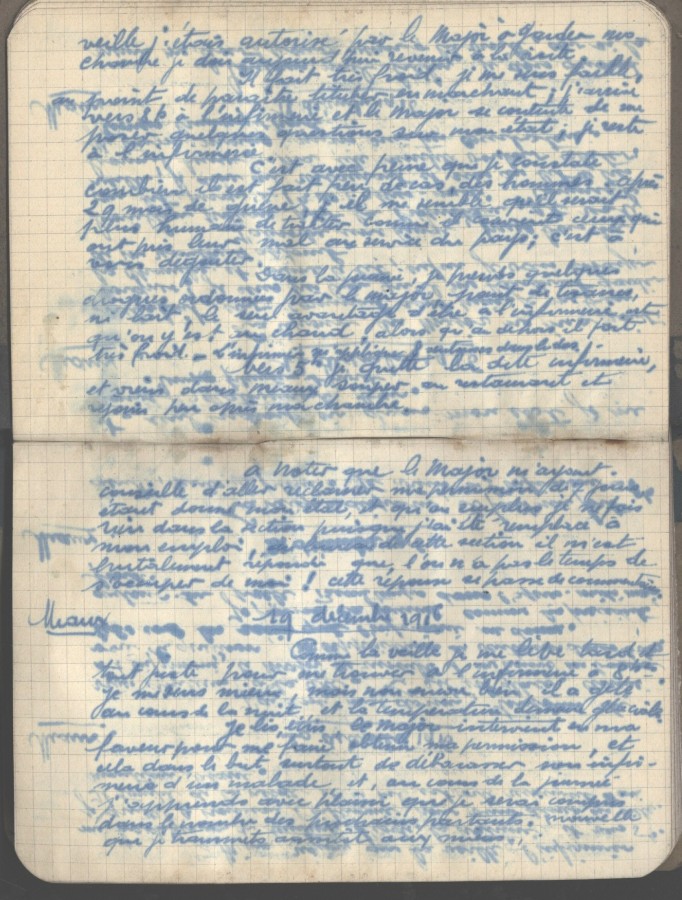 veille j'étais autorisé par le Major à garder ma
chambre je dois aujourd'hui revenir à la visite
Il fait très froid, je me sens faible,
au point de tituber en marchant; j'arrive
vers à l'infirmerie et le Major se contente de me
poser quelques questions sur mon état, je reste
à l'infirmerie.
C'est avec peine que je constate
combien il est fait peu de cas, des hommes après
29 mois de guerre, il me semble qu'il serait
plus humain de traiter ceux qui
ont pris leur mal au service du pays; c'est à
vous dégoûter.
Dans la journée, je prends quelques
drogues ordonnées par le major, point de tisanes,
ni lait le seul avantage d'être à l'infirmerie est
qu'on y est au chaud, alors qu'à dehors il fait
très froid. L'infirmerie
Vers 5h je quitte la dite infirmerie,
et viens dans Meaux souper au restaurant et
rejoins puis ma chambre.
A noter que le Major m'ayant
conseillé d'aller réclamer ma permission de 7 jours
étant donné mon état, et qu'en surplus je ne fais
rien dans la section puisque j'ai été remplacé à
mon emploi de cette section il m'est
brutalement répondu que, l'on n'a pas le temps de
s'occuper de moi! cette réponse se passe de commentaires
Meaux 19 décembre 1916
Comme la veille je me lève tard et
tout juste pour me trouver à l'infirmerie à 8h
je me sens mieux, mais non encore bien il a gelé
au cours de la nuit et la température demeure glaciale
Je le major intervient en ma
faveur pour me faire obtenir ma permission, et
cela dans le but surtout de débarrasser son infir-
merie d'un malade et, au cours de la journée
j'apprends avec plaisir que je serai compris
dans le nombre des prochains partants. nouvelle
que je transmets aussitôt aux miens.